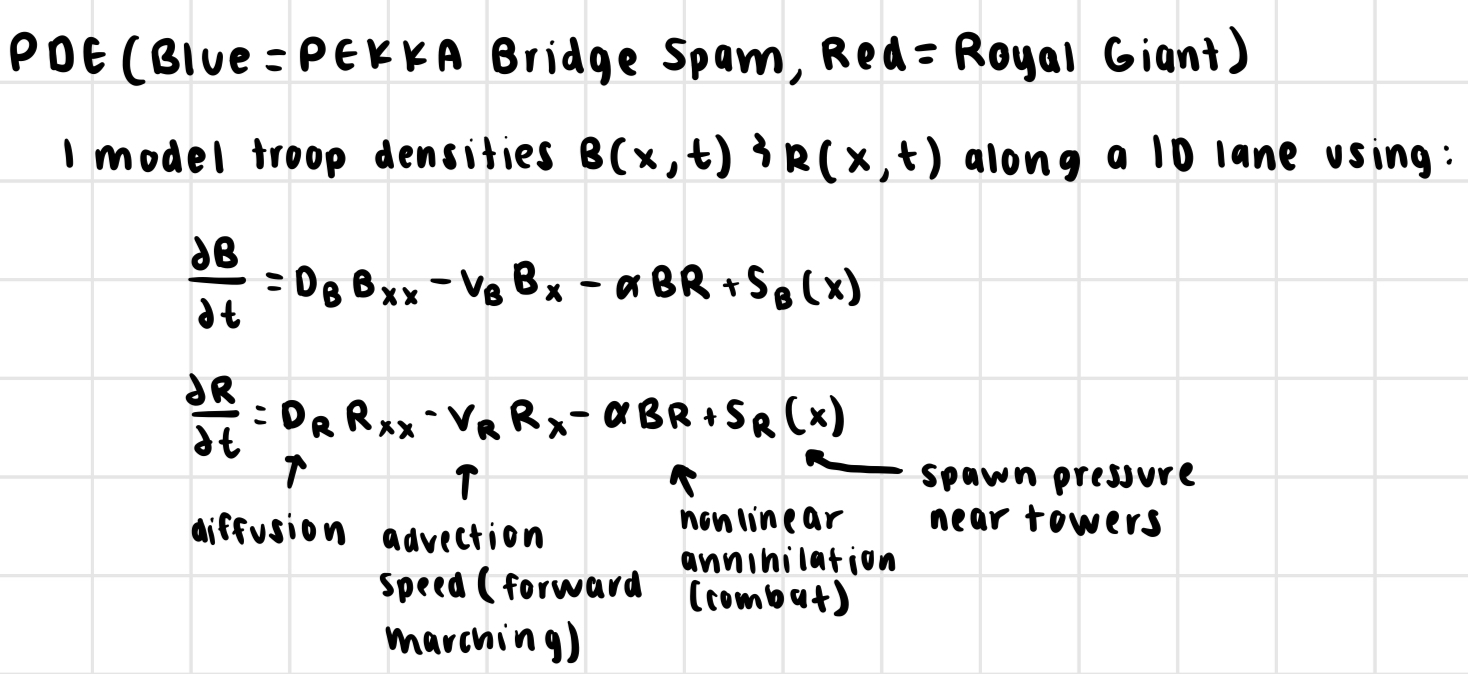 PDE (Blue = PEKKA Bridge Spam, Red = Royal Giant)
I model troop densities B(x,t) & R(x,t) along a 1D lane using:
∂B/∂t = D_B B_xx - V_B B_x - αBR + S_B(x)
∂R/∂t = D_R R_xx - V_R R_x - αBR + S_R(x)
↑ diffusion
↑ advection
speed (forward
marching)
↖ nonlinear
annihilation
(combat)
← spawn pressure
near towers